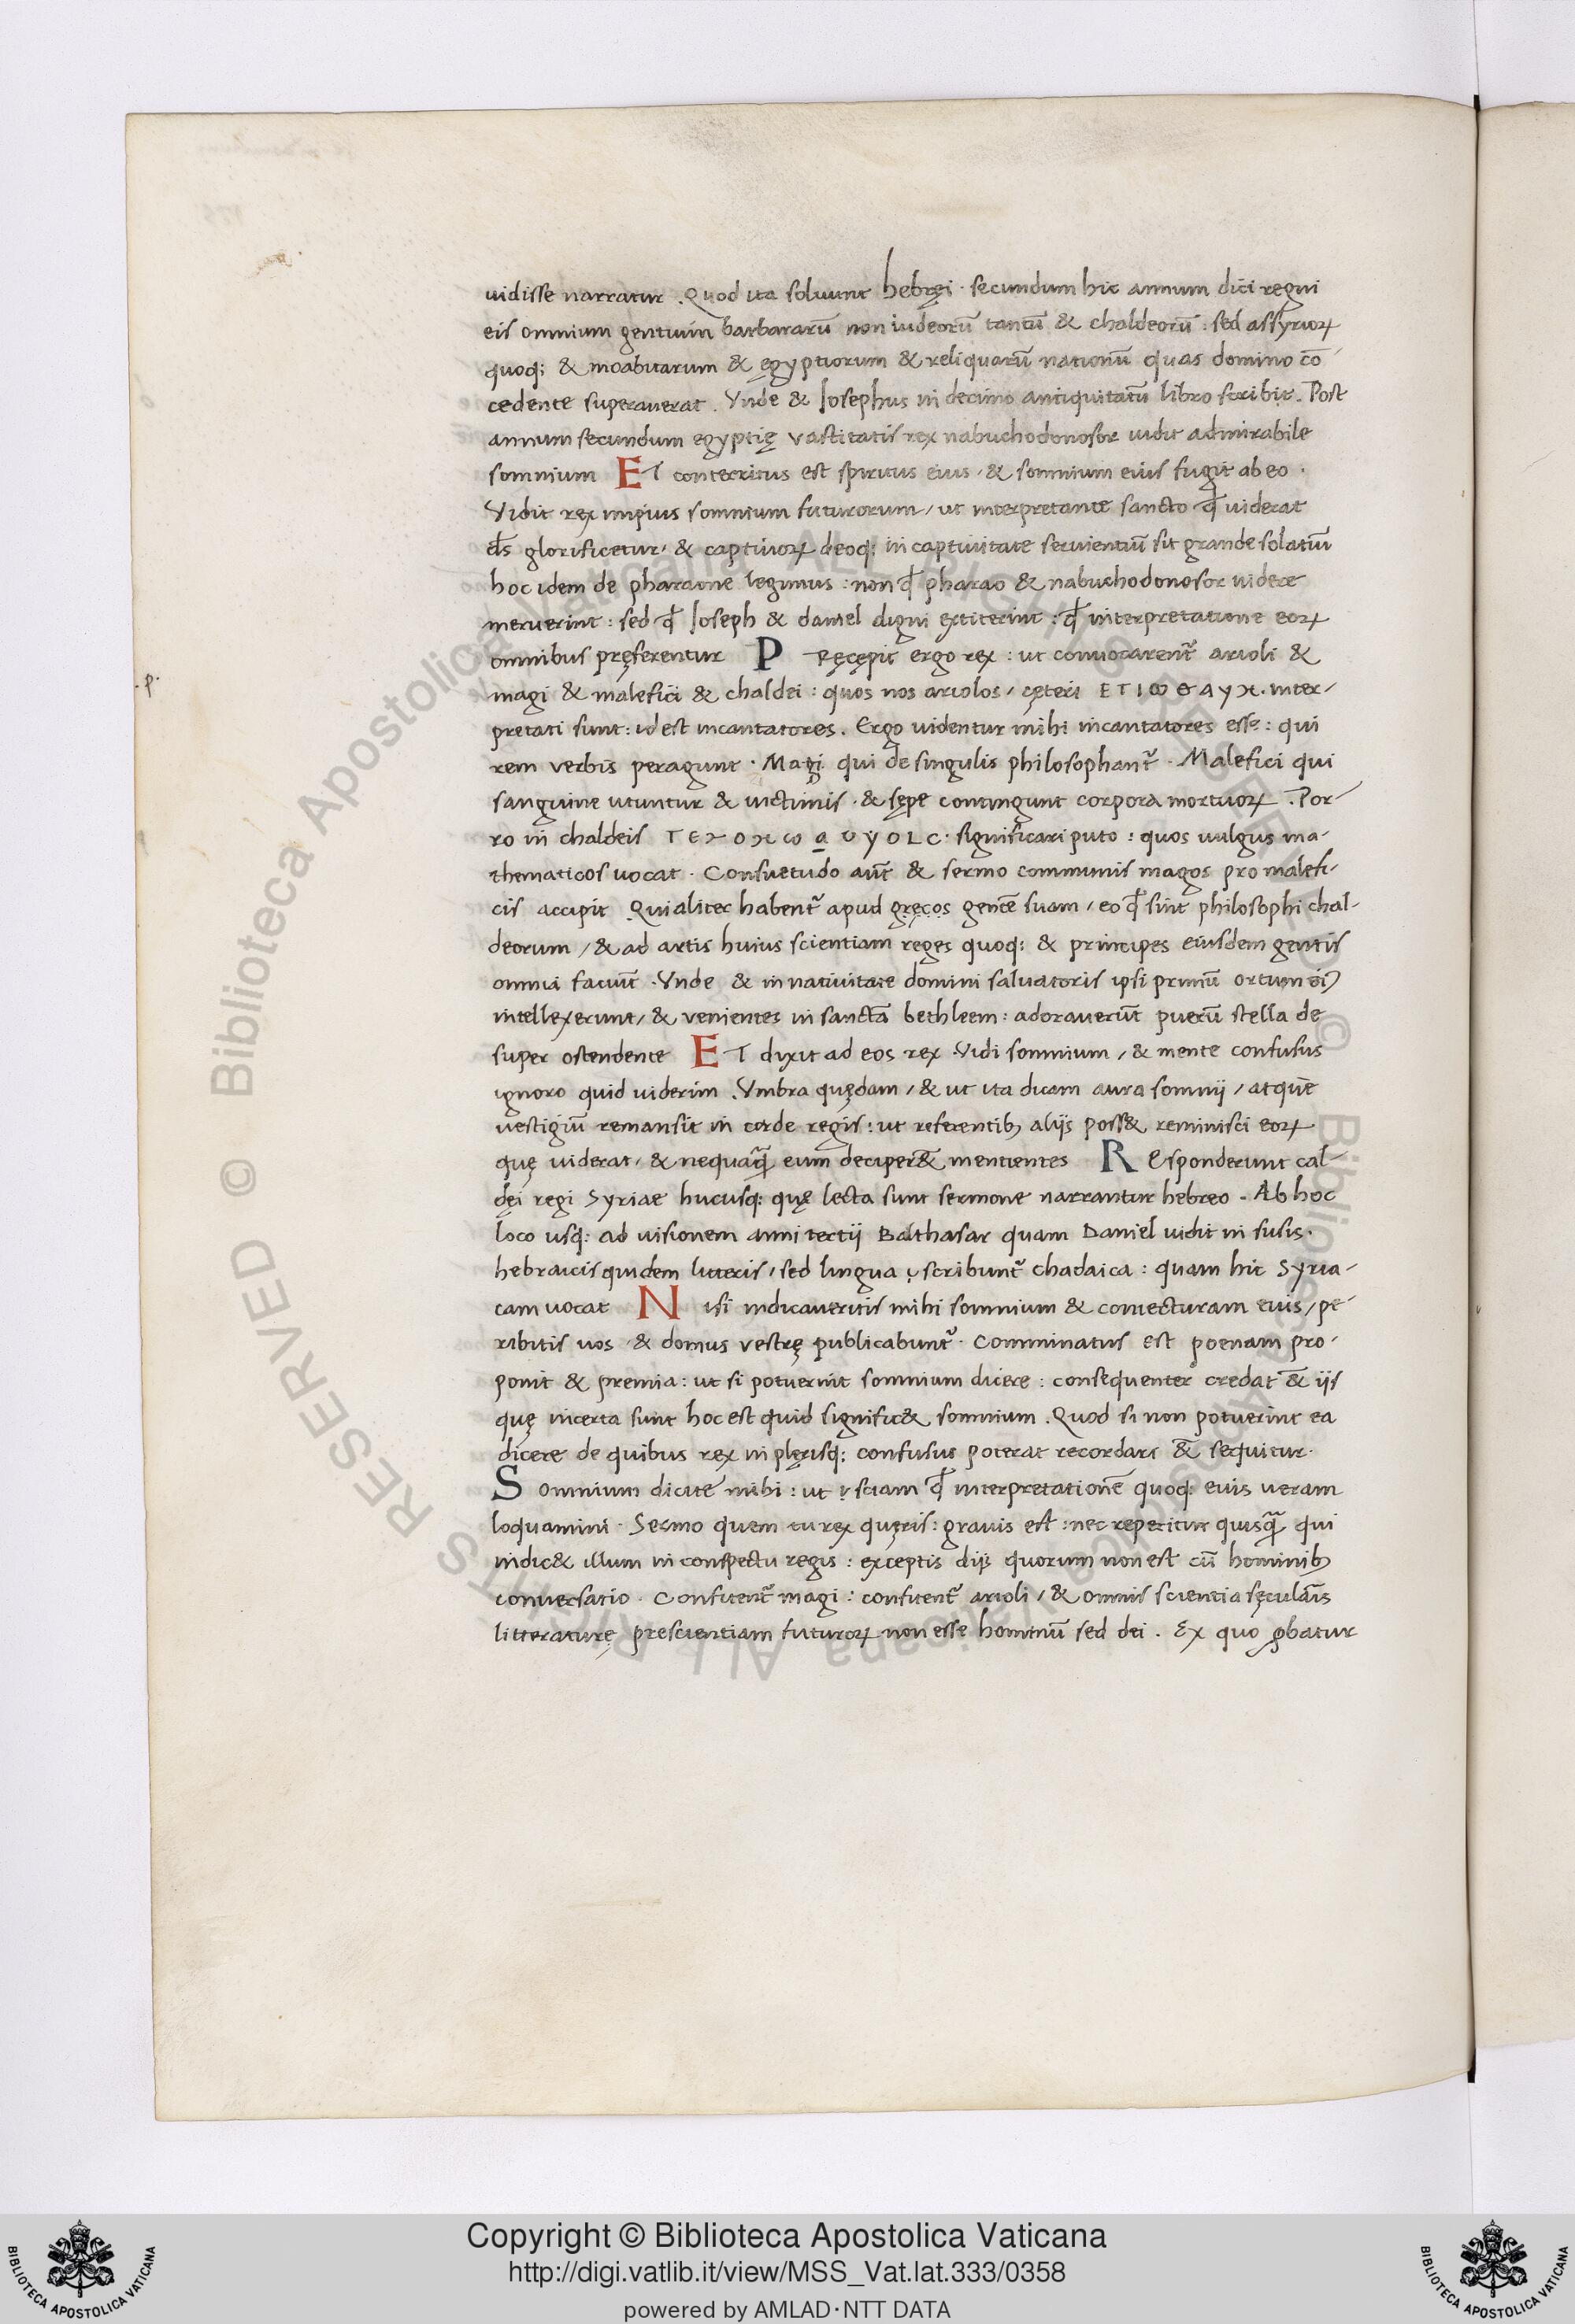 uidisse narratur . Quod ita soluunt hebręi · secundum hic annum dici regni
eis omnium gentium barbararū non iudeorū tantū & chaldeorū : sed assyrioꝝ
quoq; & moabitarum & ęgyptiorum & reliquarū nationū quas domino cō
cedente superauerat . Vnde & Iosephus in decimo antiquitatū libro scribit . Post
annum secundum egyptię vastitatis rex nabuchodonosor uidit admirabile
somnium ET conterritus est spiritus eius · & somnium eius fugit ab eo .
Vidit rex impius somnium futurorum / ut interpretante sancto ꝙ uiderat
d̄s glorificetur / & captiuoꝝ deoq; in captiuitate seruientiū sit grande solatiū
hoc idem de pharaone legimus : non ꝙ pharao & nabuchodonosor uidere
meruerint : sed ꝙ Ioseph & daniel digni extiterint : ꝙ interpretatione eoꝝ
omnibus pręferentur P Ręcępit ergo rex : ut conuocarent᷑ arioli &
.p.
magi & malefici & chaldei : quos nos ariolos / cęteri
inter-
pretati sunt : id est incantatores . Ergo uidentur mihi incantatores esse : qui
rem verbis peragunt . Magi qui de singulis philosophant᷑ . Malefici qui
sanguine utuntur & uictimis . & sępe contingunt corpora mortuoꝝ . Por-
ro in chaldeis
significari puto : quos uulgus ma-
thematicos uocat . Consuetudo aūt & sermo communis magos pro malefi-
cis accipit Qui aliter habent᷑ apud gręcos gentē suam / eo ꝙ sint philosophi chal-
deorum / & ad artis huius scientiam reges quoq; & principes eiusdem gentis
omnia faciūt . Vnde & in natiuitate domini saluatoris ipsi primū ortum ei᷒
intellexerunt / & venientes in sanctā bethleem : adorauerūt puerū stella de
super ostendente ET dixit ad eos rex . Vidi somnium / & mente confusus
ignoro quid uiderim . Vmbra quędam / & ut ita dicam aura somnij / atque
vestigiū remansit in corde regis : ut referentibꝫ alijs poss& reminisci eoꝝ
quę uiderat / & nequaꝙ̄ eum deciper& mentientes REsponderunt cal-
dęi regi Syriae hucusq; quę lecta sunt sermone narrantur hebreo . Ab hoc
loco usq; ad uisionem anni tertij Balthasar quam Daniel uidit in susis .
hebraicis quidem litteris / sed lingua scribunt᷑ chadaica : quam hic Syria-
cam uocat Nisi indicaueritis mihi somnium & coniecturam eius / pe-
ribitis uos . & domus vestrę publicabunt᷑ . Comminatus est poenam pro-
ponit & premia : ut si potuerint somnium dicere : consequenter credat̄ & ijs
quę incerta sunt hoc est quid signific& somnium . Quod si non potuerint ea
dicere de quibus rex in plęrisq; confusus poterat recordari & sequitur .
Somnium dicite mihi : ut sciam ꝙ interpretationē quoq; eius ueram
loquamini . Sermo quem tu rex quęris : grauis est : nec repetitur quisꝙ̄ qui
indic& illum in conspectu regis : exceptis dijs quorum non est cū hominibꝫ
conuersatio . Confitent᷑ magi : confitent᷑ arioli / & omnis scientia sęcularis
litteraturę prescientiam futuroꝝ non esse hominū sed dei . Ex quo ꝓbatur
Copyright © Biblioteca Apostolica Vaticana
http://digi.vatlib.it/view/MSS_Vat.lat.333/0358
powered by AMLAD·NTT DATA